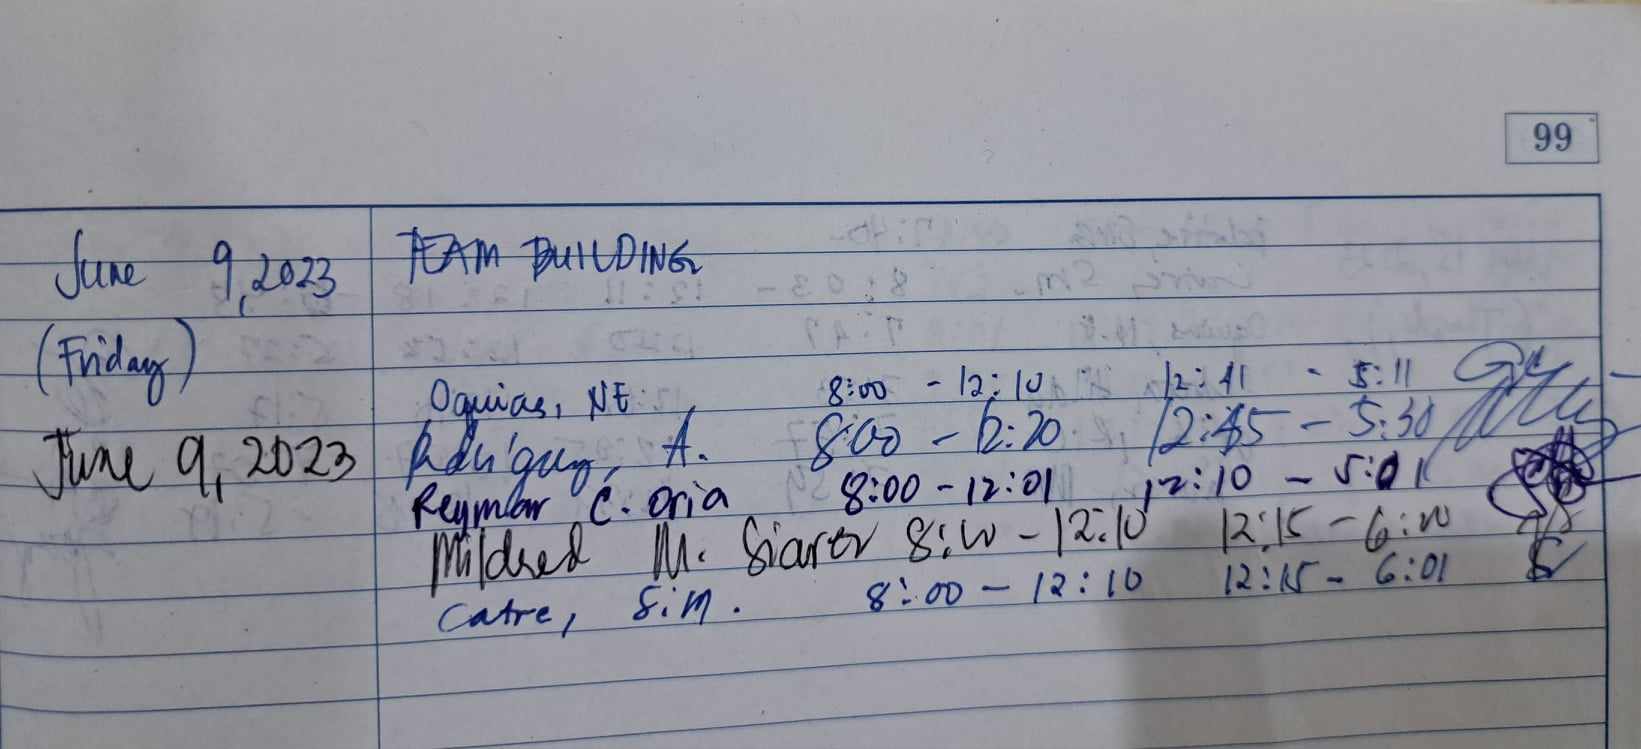 99
June 9, 2023 TEAM BUILDING
(Friday)
Oquias, NE 8:00 - 12:10 12:41 - 5:11
June 9, 2023 Rodriguez, A. 8:00 - 12:20 12:45 - 5:30
Reymar C. Oria 8:00 - 12:01 12:10 - 5:01
Mildred M. 8:00 - 12:10 12:15 - 6:00
Catre, S.M. 8:00 - 12:10 12:15 - 6:01